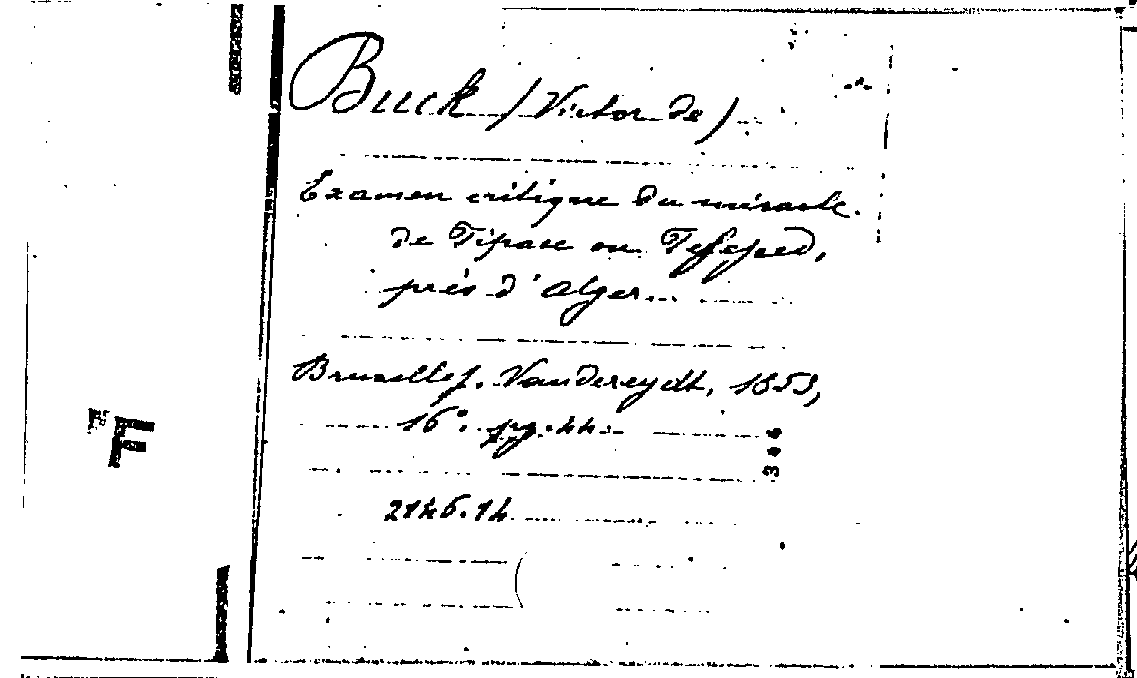 Buck (Victor de)
Examen critique du miracle
de Tipase ou Tefesed,
près d'Alger...
Bruxelles, Vandereydt, 1853,
16°. pg.44.
2146.14
F